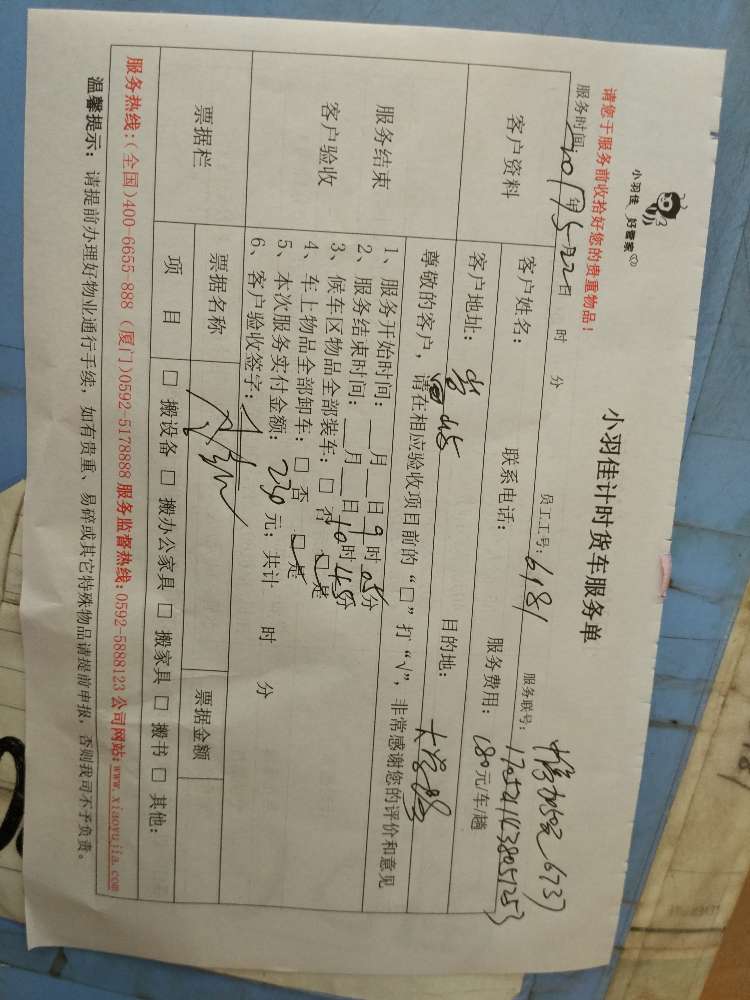 小羽佳 好管家
小羽佳计时货车服务单
请您于服务前收拾好您的贵重物品！
服务时间: 年5月22日 时 分 员工工号: 6181 服务联号: 17054143805125
6737
客户资料
客户姓名: 联系电话: 服务费用: 180元/车/趟
客户地址: 目的地:
服务结束
客户验收
尊敬的客户，请在相应验收项目前的“□”打“√”，非常感谢您的评价和意见
1、服务开始时间: __月__日9时05分
2、服务结束时间: __月__日10时45分
3、候车区物品全部装车: □ 否 □ 是
4、车上物品全部卸车: □ 否 □ 是
5、本次服务实付金额: 230元; 共计 时 分
6、客户验收签字:
票据栏
票据名称 票据金额
项 目 □ 搬设备 □ 搬办公家具 □ 搬家具 □ 搬书 □ 其他:
服务热线:(全国)400-6655-888 (厦门)0592-5178888 服务监督热线:0592-5888123 公司网站:www.xiaoyujia.com
温馨提示: 请提前办理好物业通行手续，如有贵重、易碎或其它特殊物品请提前申报，否则我司不予负责。